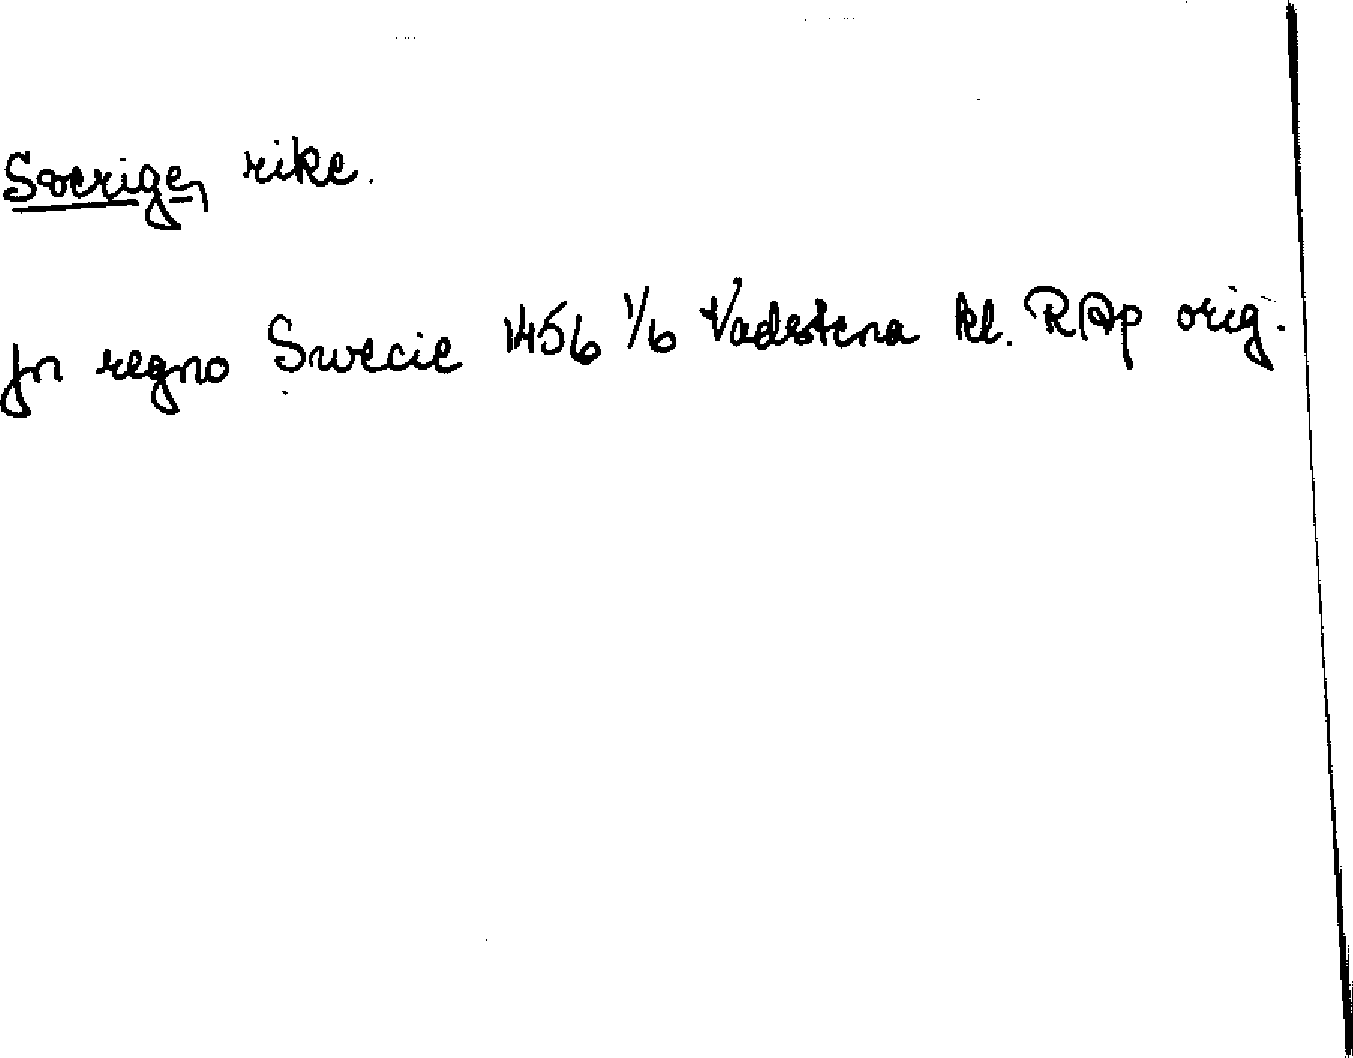 Sverige, rike.
jn regno Swecie 1456 1/6 Vadstena kl. RAp orig.